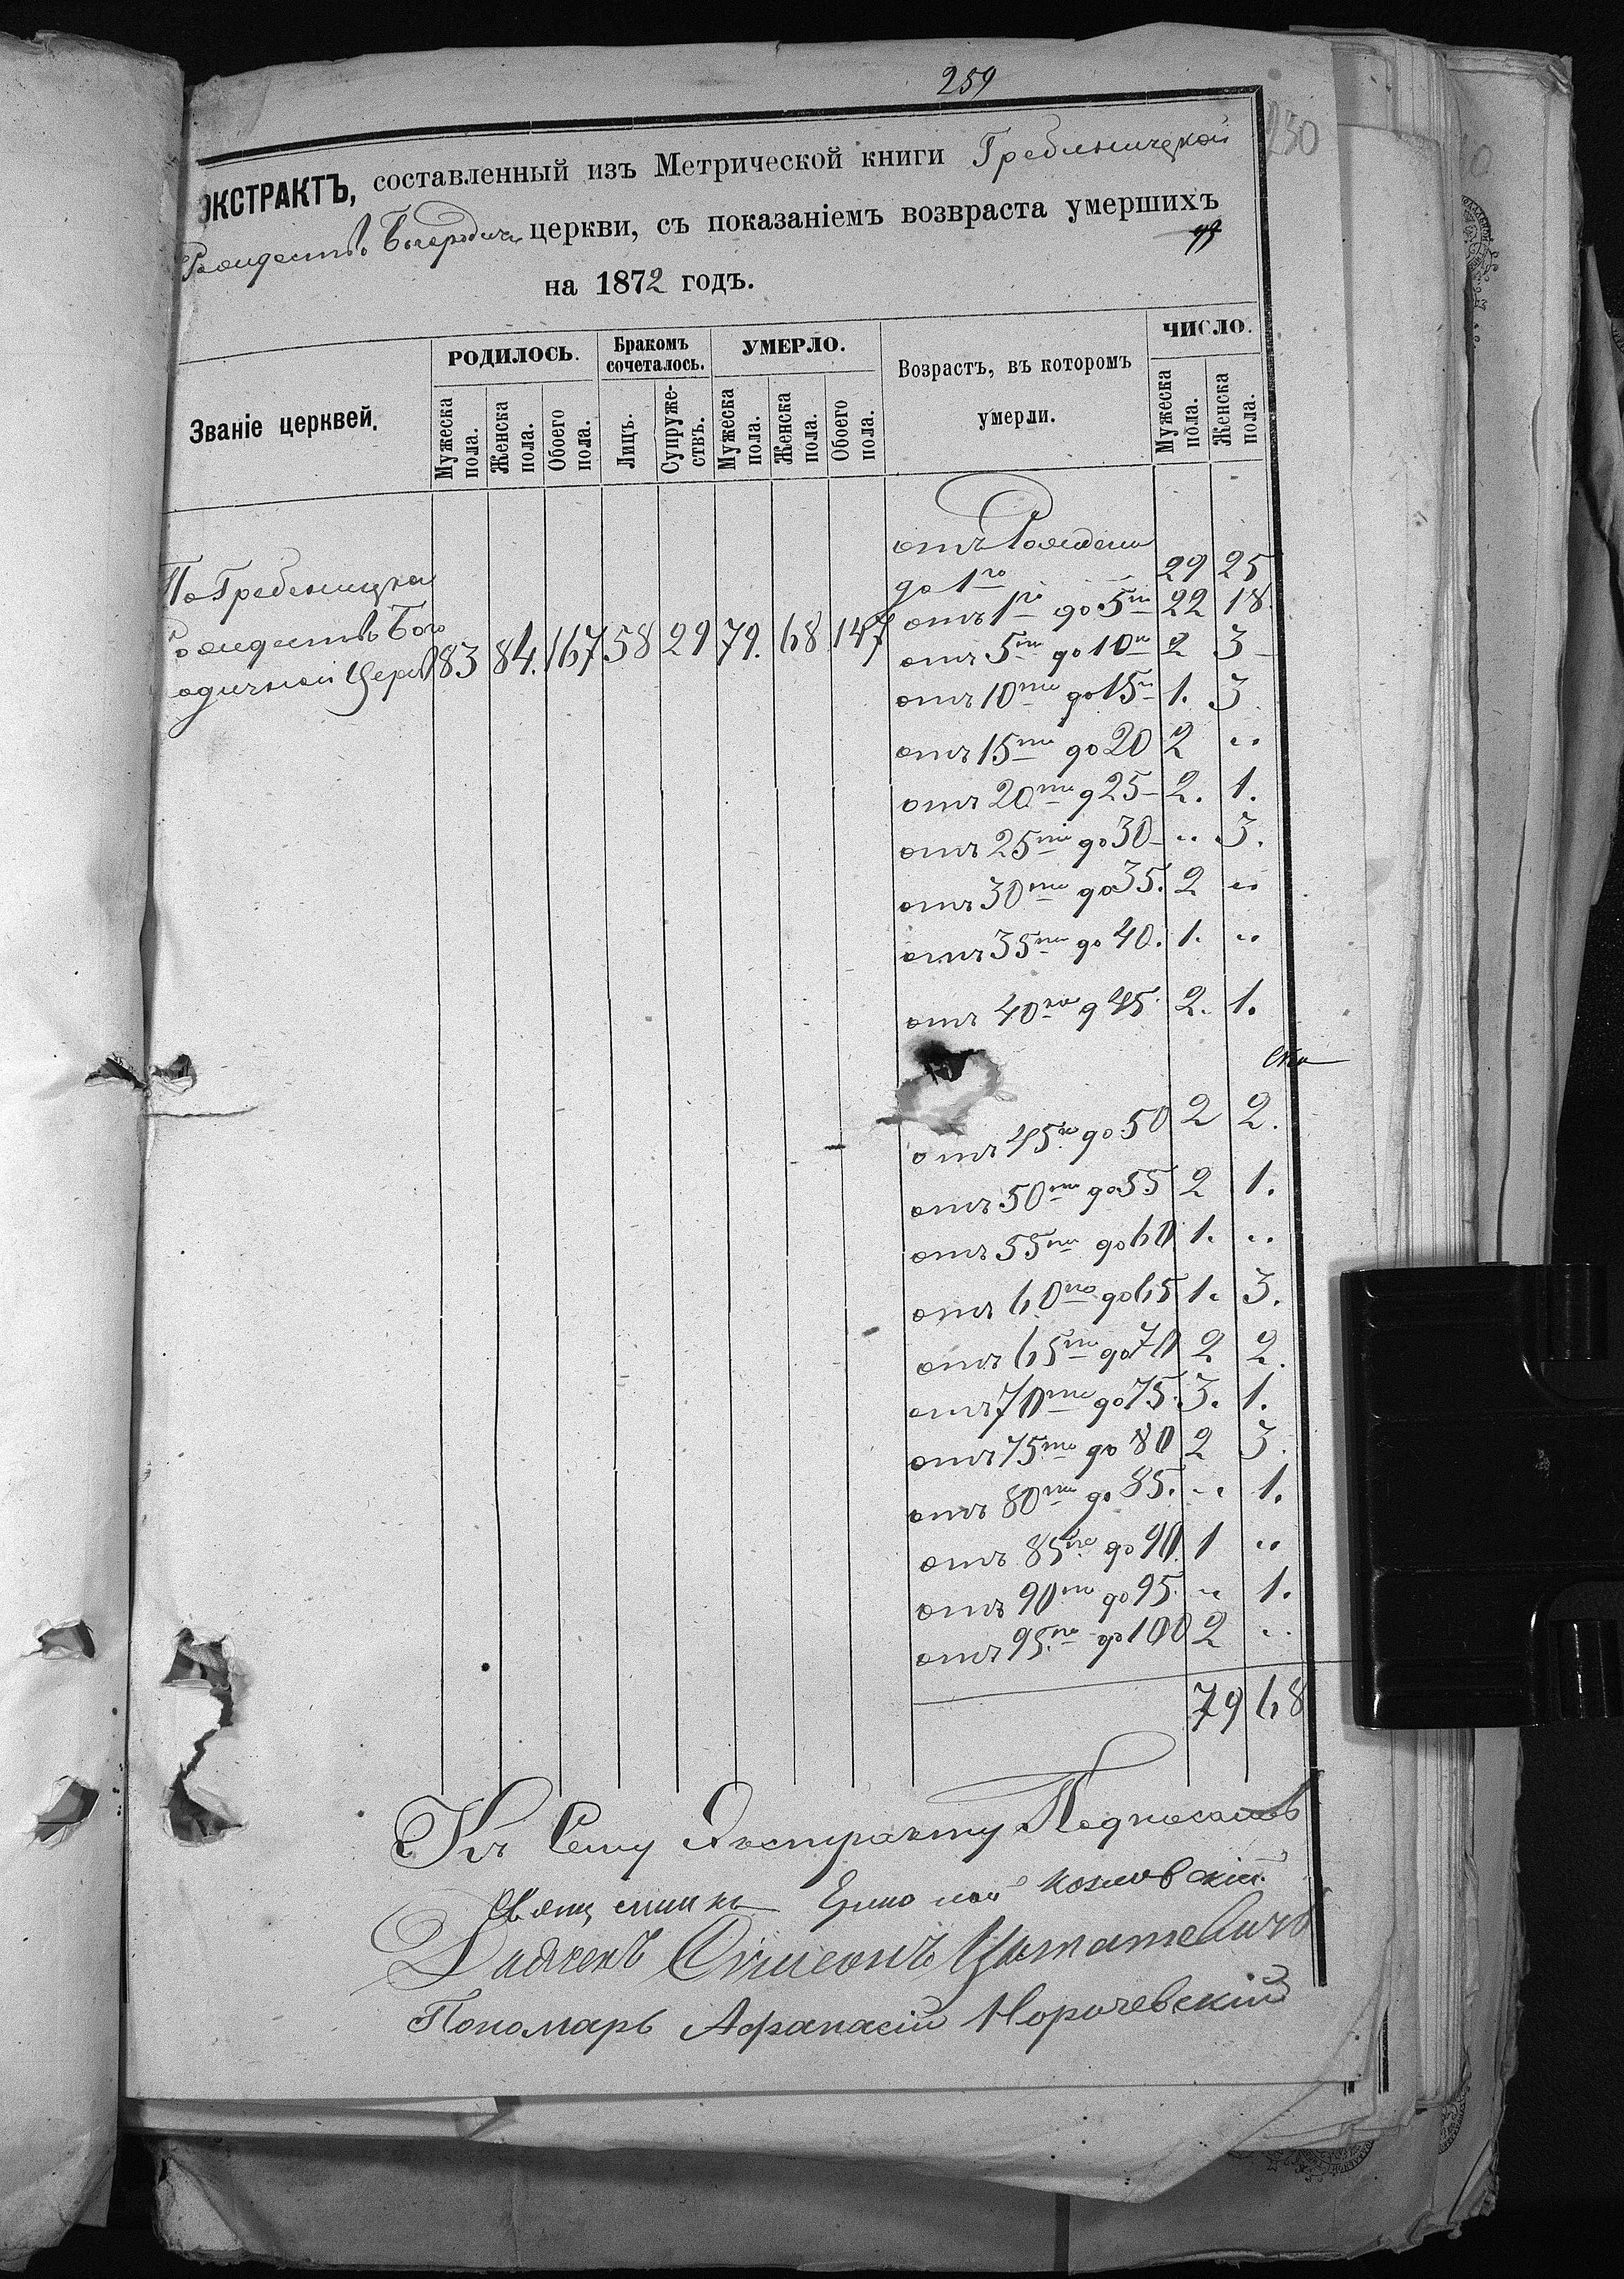 259
250
ЭКСТРАКТЪ, составленный изъ Метрической книги Гребеницкой
Рождество Богородичн церкви, съ показаніемъ возвраста умершихъ
на 1872 годъ.
Званіе церквей.
РОДИЛОСЬ.
Бракомъ сочеталось.
УМЕРЛО.
Возрастъ, въ которомъ умерли.
ЧИСЛО.
Мужеска пола.
Женска пола.
Обоего пола.
Лицъ.
Супружествъ.
Мужеска пола.
Женска пола.
Обоего пола.
Мужеска пола.
Женска пола.
По Гребеницка
Рождество Бого
родичной Церк 83 84. 167 58 29 79. 68 147
отъ Рожденія
до 1го 29 25
отъ 1го до 5ти 22 18.
отъ 5ти до 10ти 2 3
отъ 10ти до 15ти 1. 3
отъ 15ти до 20 2 "
отъ 20ти д 25 2. 1.
отъ 25ти до 30 " 3.
отъ 30ти до 35. 2 "
отъ 35ти до 40. 1. "
отъ 40ка д 45 2. 1.
отъ 45ти до 50 2 2.
отъ 50ти до 55 2 1.
отъ 55ти до 60 1. "
отъ 60ти до 65 1. 3.
отъ 65ти до 70 2 2.
отъ 70ти до 75 3. 1.
отъ 75ти до 80 2 3.
отъ 80ти до 85. " 1.
отъ 85ти до 90 1 "
отъ 90то до 95 " 1.
отъ 95ти до 100 2 "
79 68
Къ Сему Экстракту Подписались
Священникъ Козловскій
Дьячекъ Симеонъ
Пономарь Афанасій Норочевскій